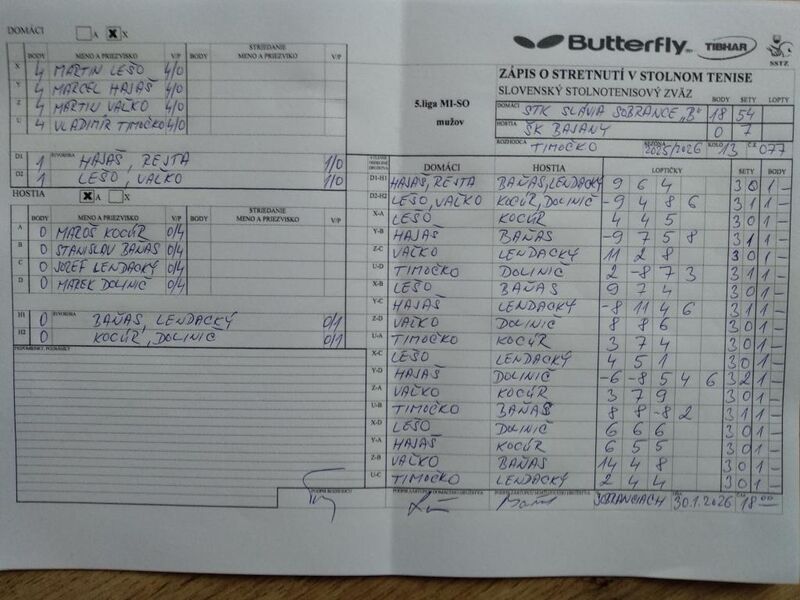 DOMÁCI A X X
Butterfly TIBHAR SSTZ
BODY MENO A PRIEZVISKO V/P BODY STRIEDANIE MENO A PRIEZVISKO V/P
X 4 MARTIN LEŠO 4/0
Y 4 MARCEL HAJAŠ 4/0
Z 4 MARTIN VAĽKO 4/0
U 4 VLADIMÍR TIMOČKO 4/0
D1 1 ŠTVORHRA HAJAŠ, REJTA 1/0
D2 1 LEŠO, VAĽKO 1/0
HOSTIA X A X
BODY MENO A PRIEZVISKO V/P BODY STRIEDANIE MENO A PRIEZVISKO V/P
A 0 MAROŠ KOCÚR 0/4
B 0 STANISLAV BAŇAS 0/4
C 0 JOZEF LENDACKÝ 0/4
D 0 MAREK DOLINIČ 0/4
H1 0 ŠTVORHRA BAŇAS, LENDACKÝ 0/1
H2 0 KOCÚR, DOLINIČ 0/1
PRIPOMIENKY, POZNÁMKY
PODPIS ROZHODCU
5.liga MI-SO
mužov
ZÁPIS O STRETNUTÍ V STOLNOM TENISE
SLOVENSKÝ STOLNOTENISOVÝ ZVÄZ BODY SETY LOPTY
DOMÁCI STK SLÁVIA SOBRANCE „B" 18 54
HOSTIA ŠK BAJANY 0 7
ROZHODCA TIMOČKO SEZÓNA 2025/2026 KOLO 13 Č.Z. 077
DOMÁCI HOSTIA LOPTIČKY SETY BODY
D1-H1 HAJAŠ, REJTA BAŇAS, LENDACKÝ 9 6 4 3 0 1 -
D2-H2 LEŠO, VAĽKO KOCÚR, DOLINIČ -9 4 8 6 3 1 1 -
X-A LEŠO KOCÚR 4 4 5 3 0 1 -
Y-B HAJAŠ BAŇAS -9 7 5 8 3 1 1 -
Z-C VAĽKO LENDACKÝ 11 2 8 3 0 1 -
U-D TIMOČKO DOLINIČ 2 -8 7 3 3 1 1 -
X-B LEŠO BAŇAS 9 7 4 3 0 1 -
Y-C HAJAŠ LENDACKÝ -8 11 4 6 3 1 1 -
Z-D VAĽKO DOLINIČ 8 8 6 3 0 1 -
U-A TIMOČKO KOCÚR 3 7 4 3 0 1 -
X-C LEŠO LENDACKÝ 4 5 1 3 0 1 -
Y-D HAJAŠ DOLINIČ -6 -8 5 4 6 3 2 1 -
Z-A VAĽKO KOCÚR 3 7 9 3 0 1 -
U-B TIMOČKO BAŇAS 8 8 -8 2 3 1 1 -
X-D LEŠO DOLINIČ 6 6 6 3 0 1 -
Y-A HAJAŠ KOCÚR 6 5 5 3 0 1 -
Z-B VAĽKO BAŇAS 14 4 8 3 0 1 -
U-C TIMOČKO LENDACKÝ 2 4 4 3 0 1 -
PODPIS ZÁSTUPCU DOMÁCEHO DRUŽSTVA PODPIS ZÁSTUPCU HOSŤUJÚCEHO DRUŽSTVA SOBRANCIACH 30.1.2026 18 00